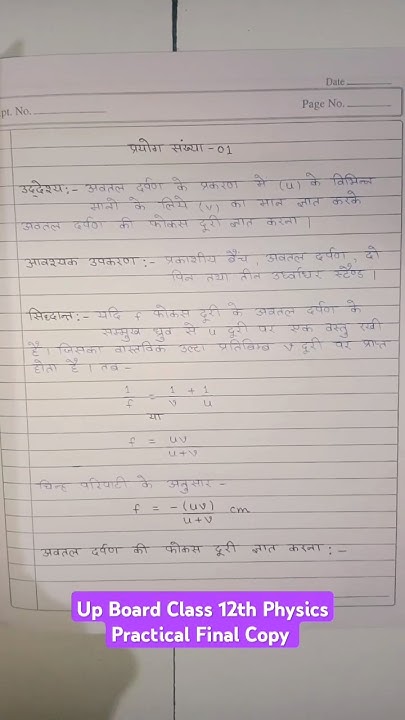 Date
pt. No.
Page No.
प्रयोग संख्या - 01
उद्देश्य:- अवतल दर्पण के प्रकरण मे (u) के विभिन्न
मानो के लिये (v) का मान ज्ञात करके
अवतल दर्पण की फोकस दूरी ज्ञात करना।
आवश्यक उपकरण :- प्रकाशीय बैंच, अवतल दर्पण, दो
पिन तथा तीन उर्ध्वाधर स्टैण्ड।
सिद्धान्त:- यदि f फोकस दूरी के अवतल दर्पण के
सम्मुख ध्रुव से u दूरी पर एक वस्तु रखी
है। जिसका वास्तविक उल्टा प्रतिबिम्ब v दूरी पर प्राप्त
होता है। तब -
1/f = 1/v + 1/u
या
f = uv/u+v
चिन्ह परिपाटी के अनुसार -
f = -(uv)/u+v cm
अवतल दर्पण की फोकस दूरी ज्ञात करना:-
Up Board Class 12th Physics
Practical Final Copy